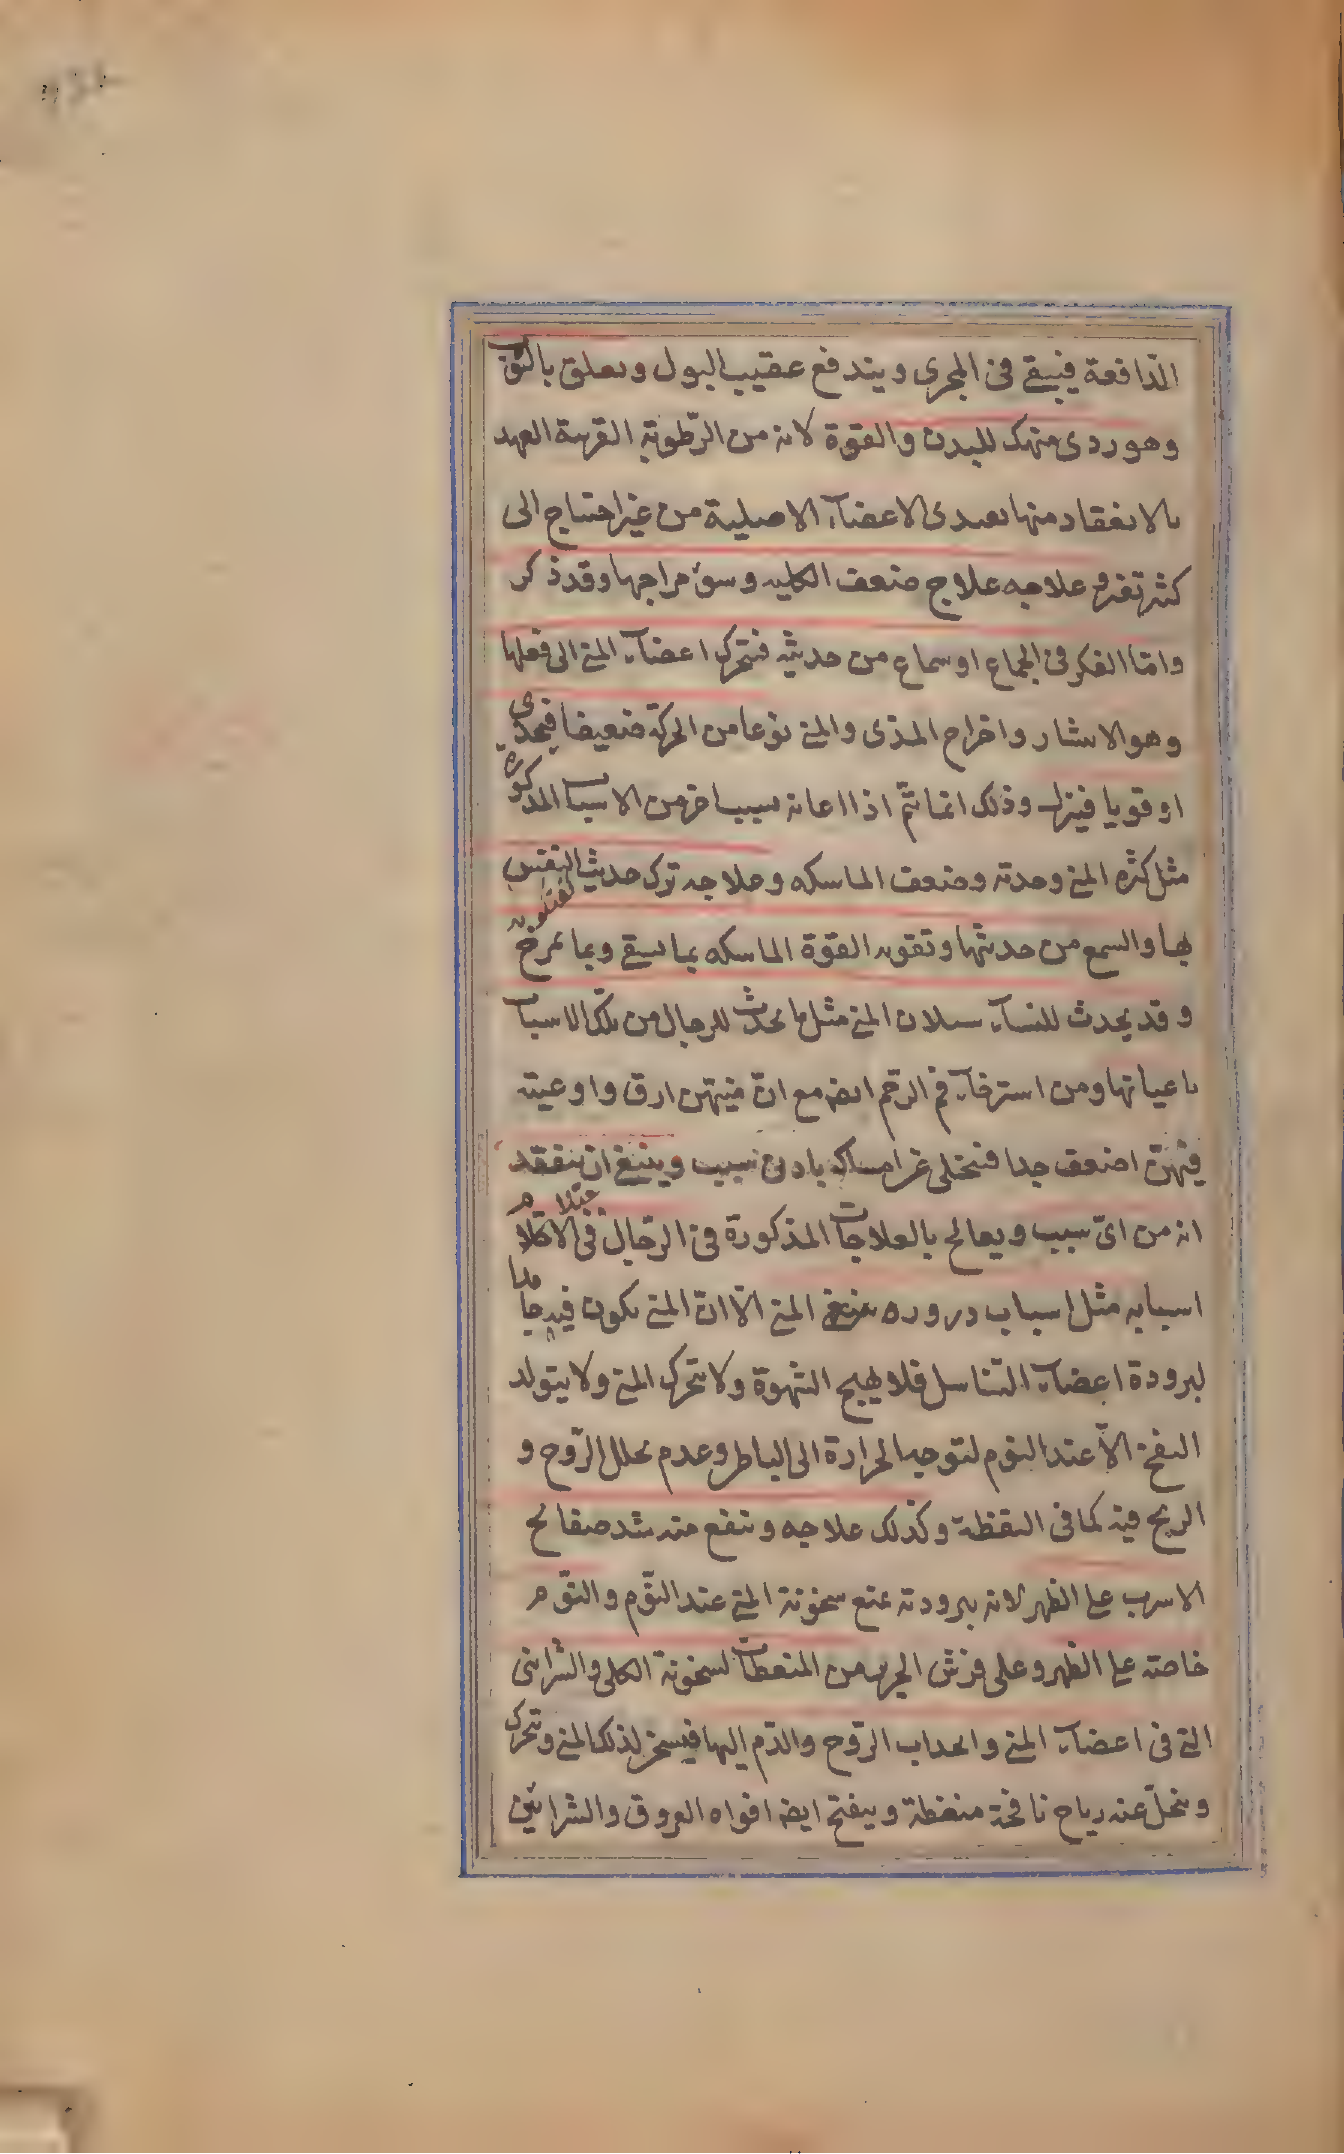 الدافعة فيبقى فى المجرى ويندفع عقيب البول ويعلق بالثوب
وهو ردى منهك للبدن والقوة لانه من الرطوبة القريبة العهد
بالانعقاد منها تغتذى الاعضاء الاصلية من غير احتياج الى
كثير تغير وعلاجه علاج ضعف الكليه وسوء مزاجها وقد ذكر
واما الفكر فى الجماع او سماع من حديثه فتحرك اعضاء المنى الى فعلها
وهو الانتشار واخراج المذى والمنى نوعا من الحركة ضعيفا فيمذى
او قويا فينزل وذلك انما يتم اذا اعانه سبب اخر من الاسباب المذكورة
مثل كثرة المنى وحدته وضعف الماسكه وعلاجه ترك حديث النفس
بها والسمع من حديثها وتقويه القوة الماسكه بما يسقى وبما يمرخ
وقد يحدث للنساء سيلان المنى مثل ما يحدث للرجال من تلك الاسباب
باعيانها ومن استرخاء فم الرحم ايضه مع ان منيهن ارق واوعيته
فيهن اضعف جدا فتخلى عن امساكه بادنى سبب وينبغى ان يتفقد
انه من اى سبب ويعالج بالعلاجات المذكورة فى الرجال فى الاحتلام
اسبابه مثل اسباب دروره المنى الا ان المنى يكون فيه جامدا
لبرودة اعضاء التناسل فلا يهيج الشهوة ولا يتحرك المنى ولا يتولد
النفخ الا عند النوم لتوجه الحرارة الى الباطن وعدم تحلل الروح و
الريح فيه كما فى اليقظة وكذلك علاجه وينفع منه شد صفائح
الاسرب على الظهر لانه ببرودته يمنع سخونة المنى عند النوم والنوم
خاصته على الظهر وعلى فرش الحرير من المنعظات لسخونة الكلى والشرايين
التى فى اعضاء المنى وانجذاب الروح والدم اليها فيسخن لذلك المنى ويتحرك
وينحل عنه رياح نافخة منعظة ويتفتح ايضه افواه العروق والشرايين